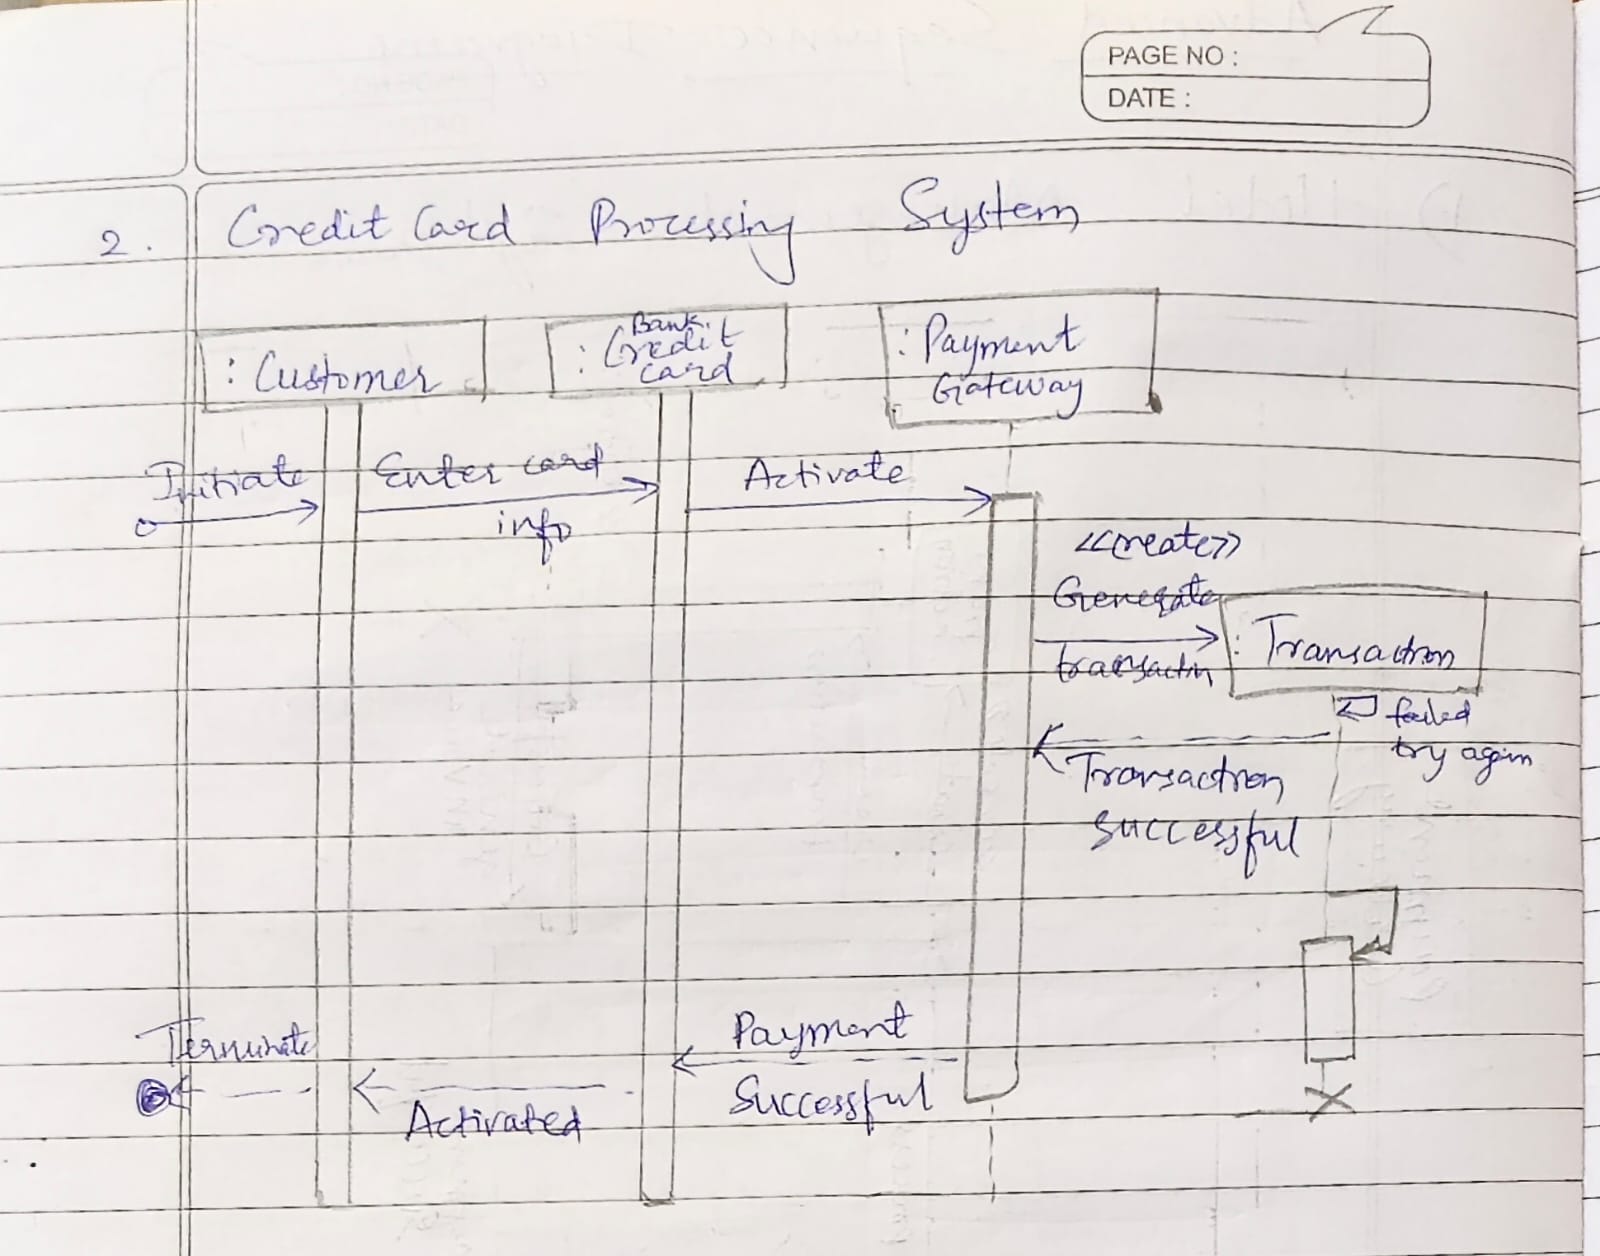 PAGE NO :
DATE :
2. Credit Card Processing System
: Customer
Bank
: Credit
card
: Payment
Gateway
Initiate
Enter card
info
Activate
<<create>>
Generate
transactin
: Transaction
failed
try again
Transaction
successful
Terminate
Activated
Payment
Successful